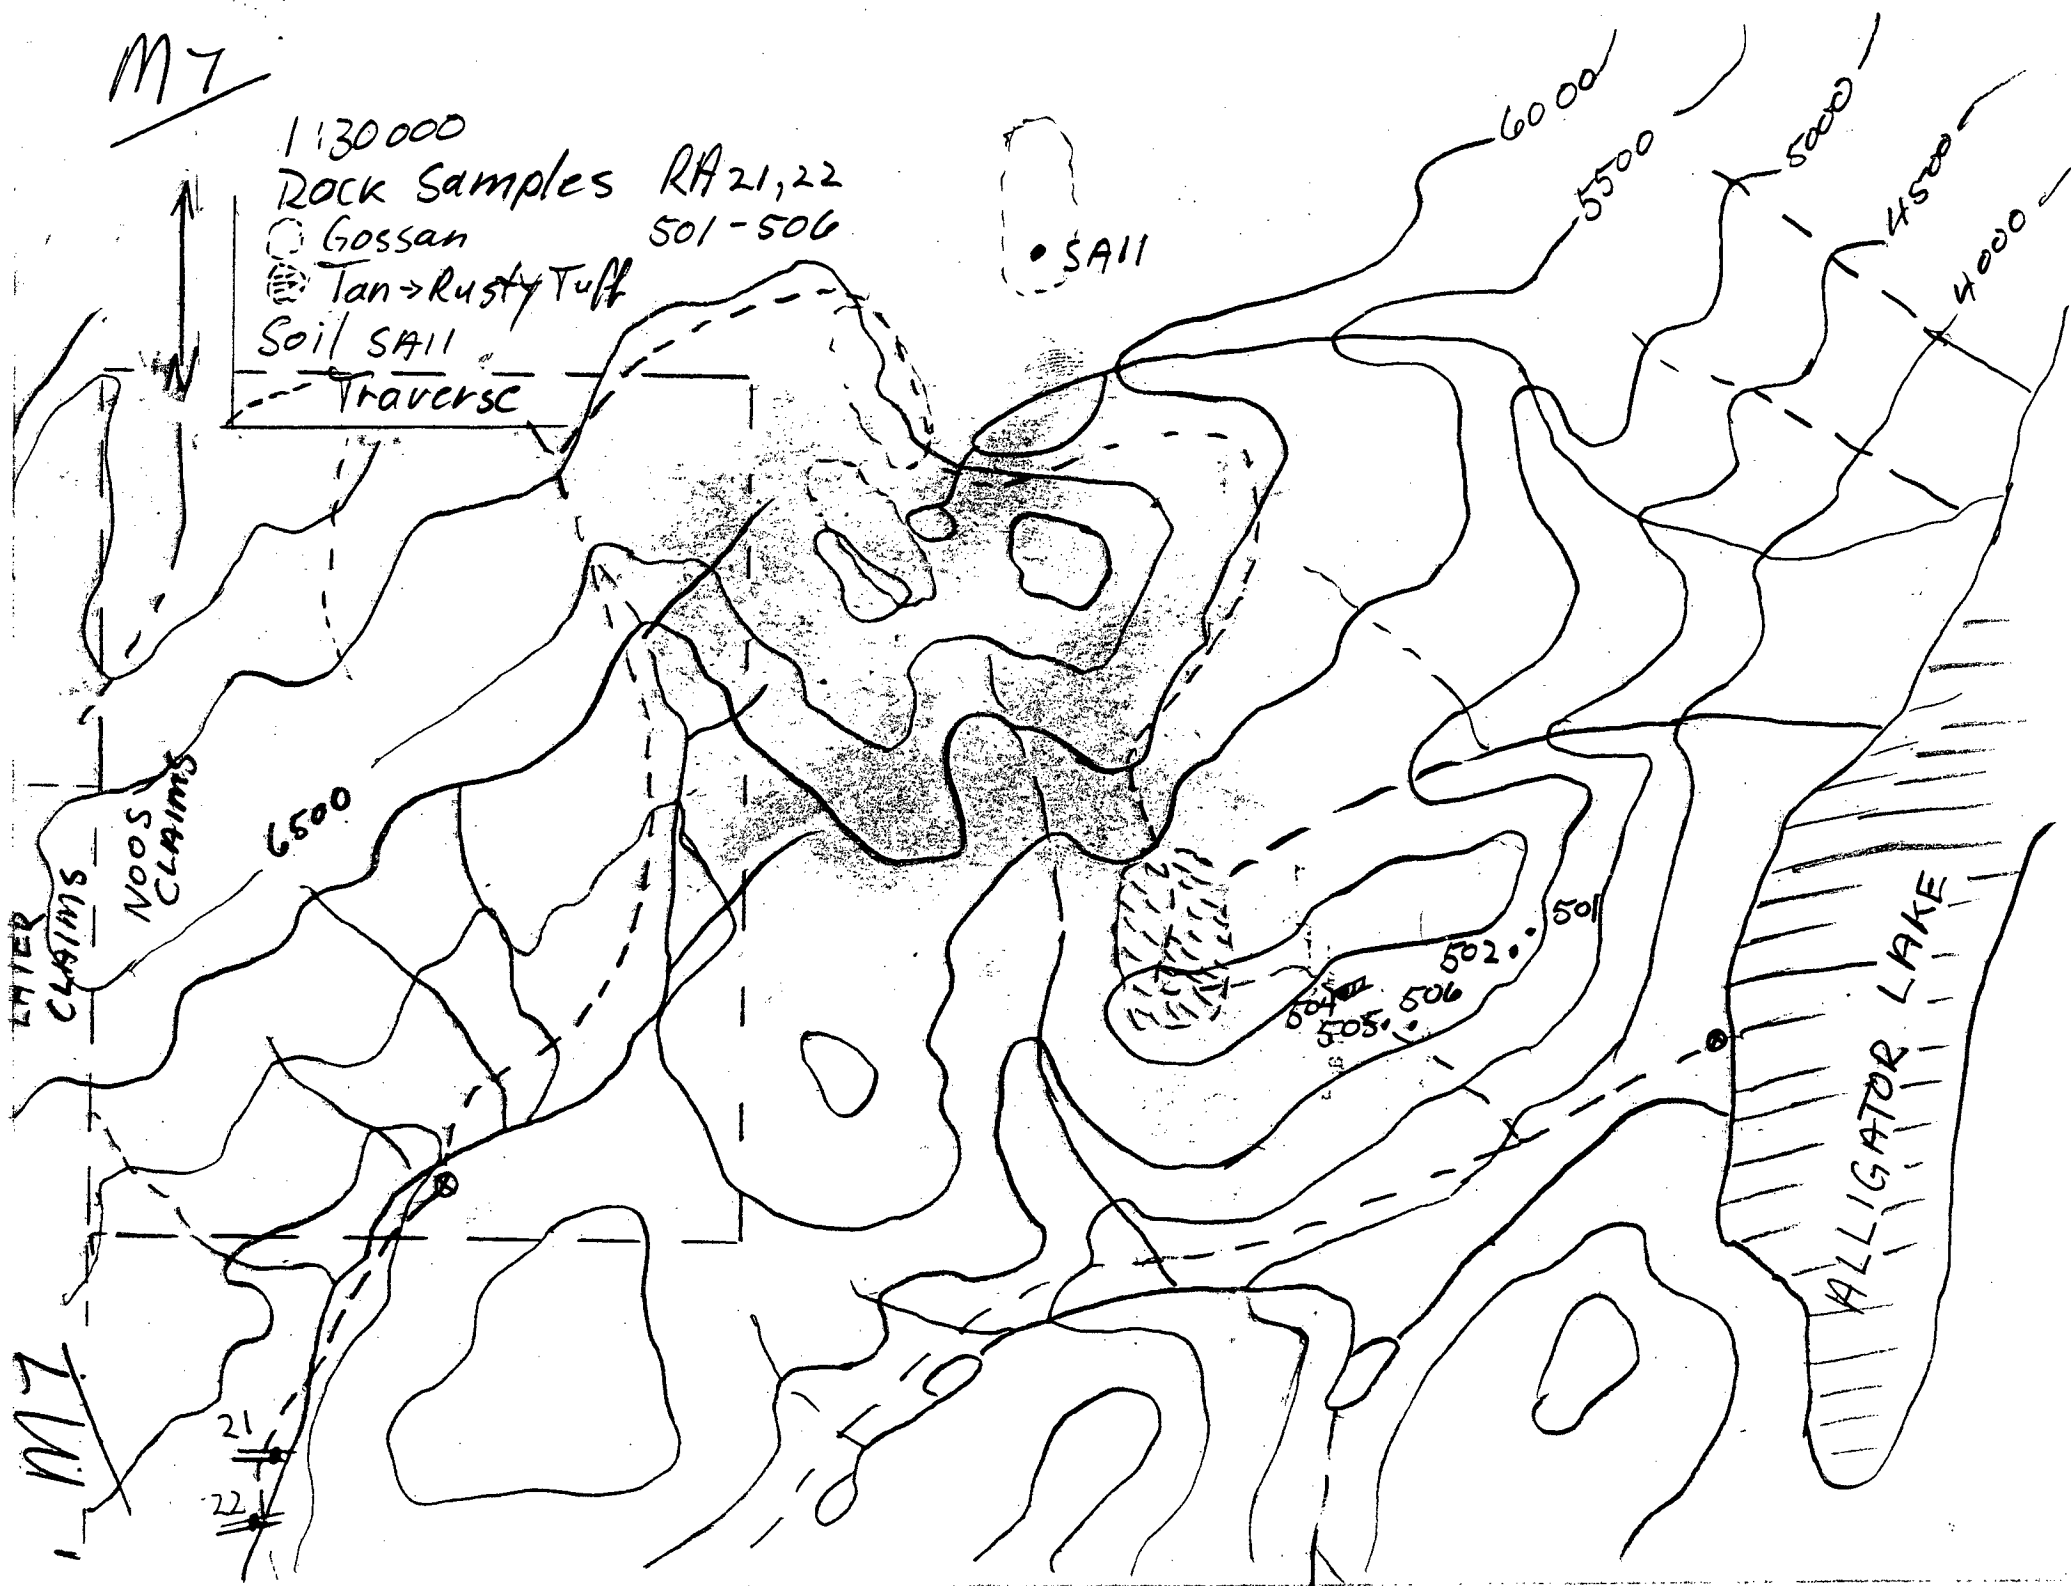 M7
1:30000
Rock Samples RA21,22
501-506
Gossan
Tan→Rusty Tuff
Soil SA11
Traverse
N
SA11
6000
5500
5000
4500
4000
6500
NOOS
CLAIMS
LATER
CLAIMS
501
502
504
506
505
ALLIGATOR LAKE
M7
21
22